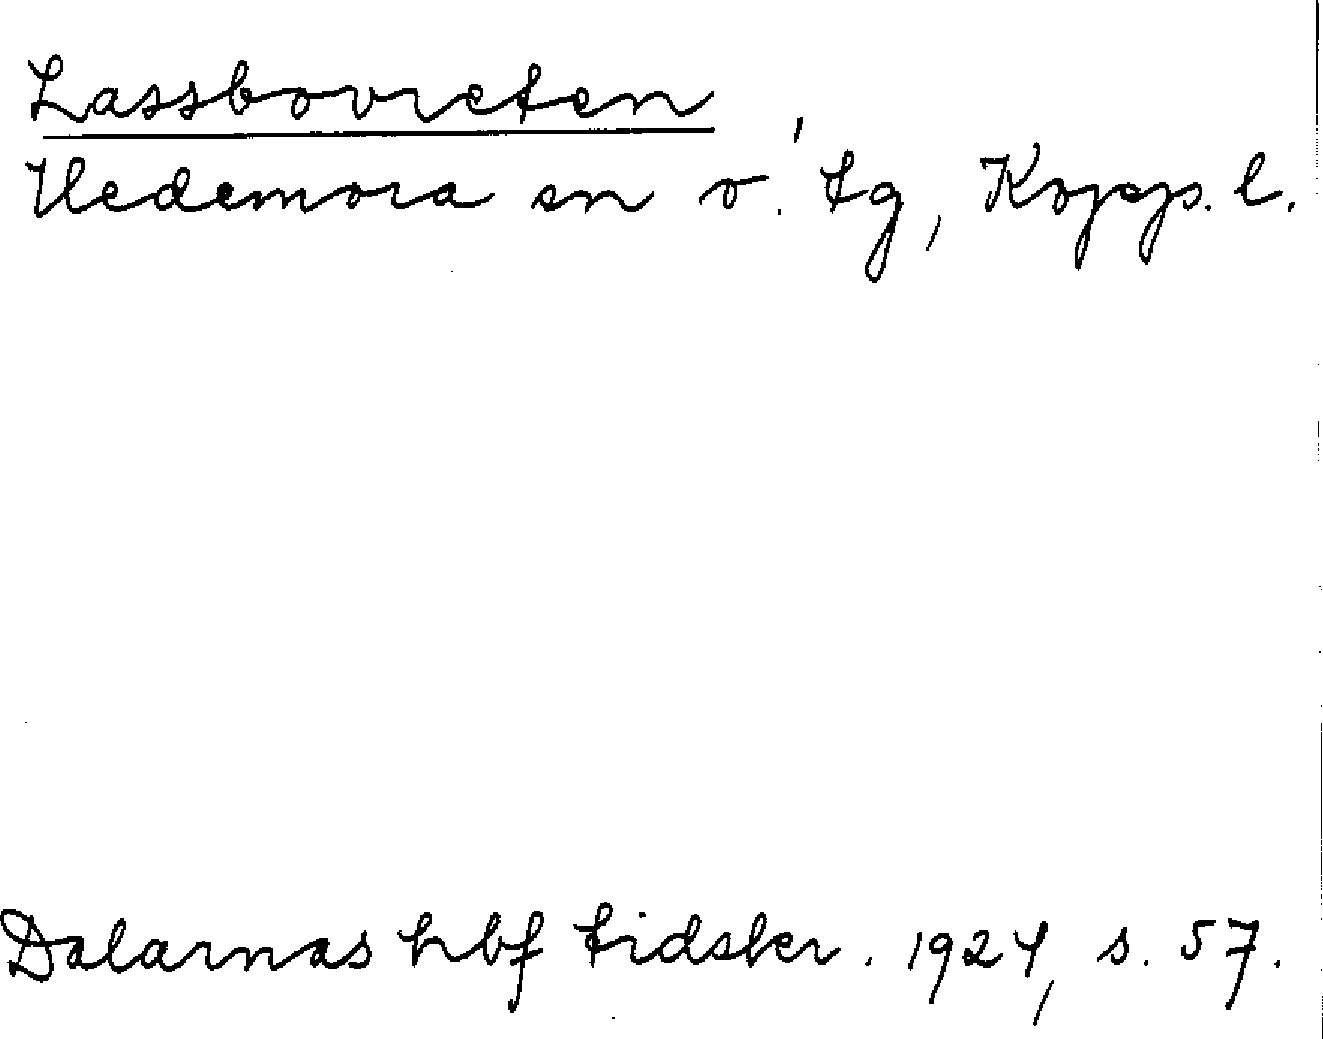 Lassbovreten
Hedemora sn o. tg, Kopp. l.
Dalarnas hbf tidskr. 1924, s. 57.